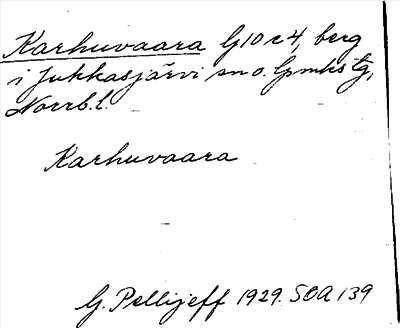 Karhuvaara G10c4, berg
i Jukkasjärvi sn o. lpmks tg,
Norrb.l.
Karhuvaara
G. Pellijeff 1929. SOA 139